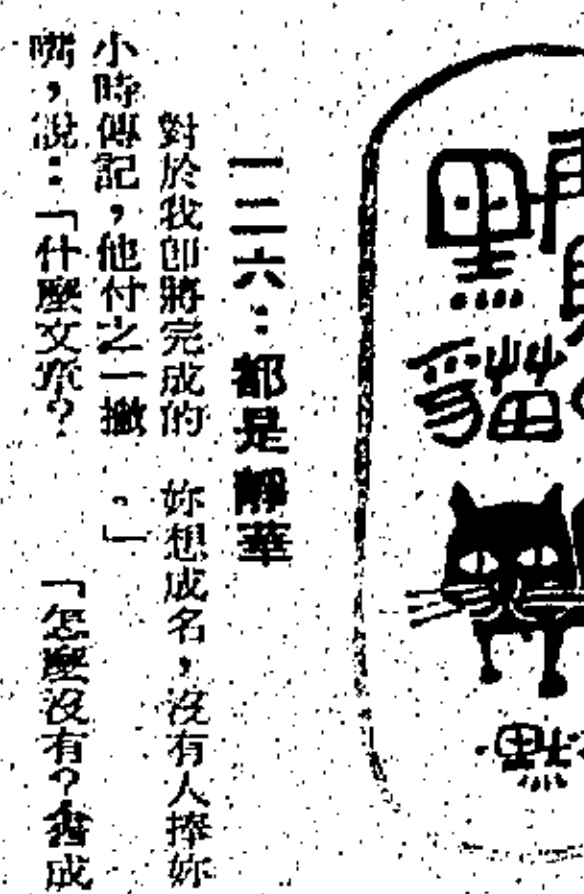 黑
貓
一二六：都是靜華
對於我即將完成的
小時傳記，他付之一撇
嘴，說：「什麼文？
妳想成名，沒有人捧妳
。」
「怎麼沒有？書成